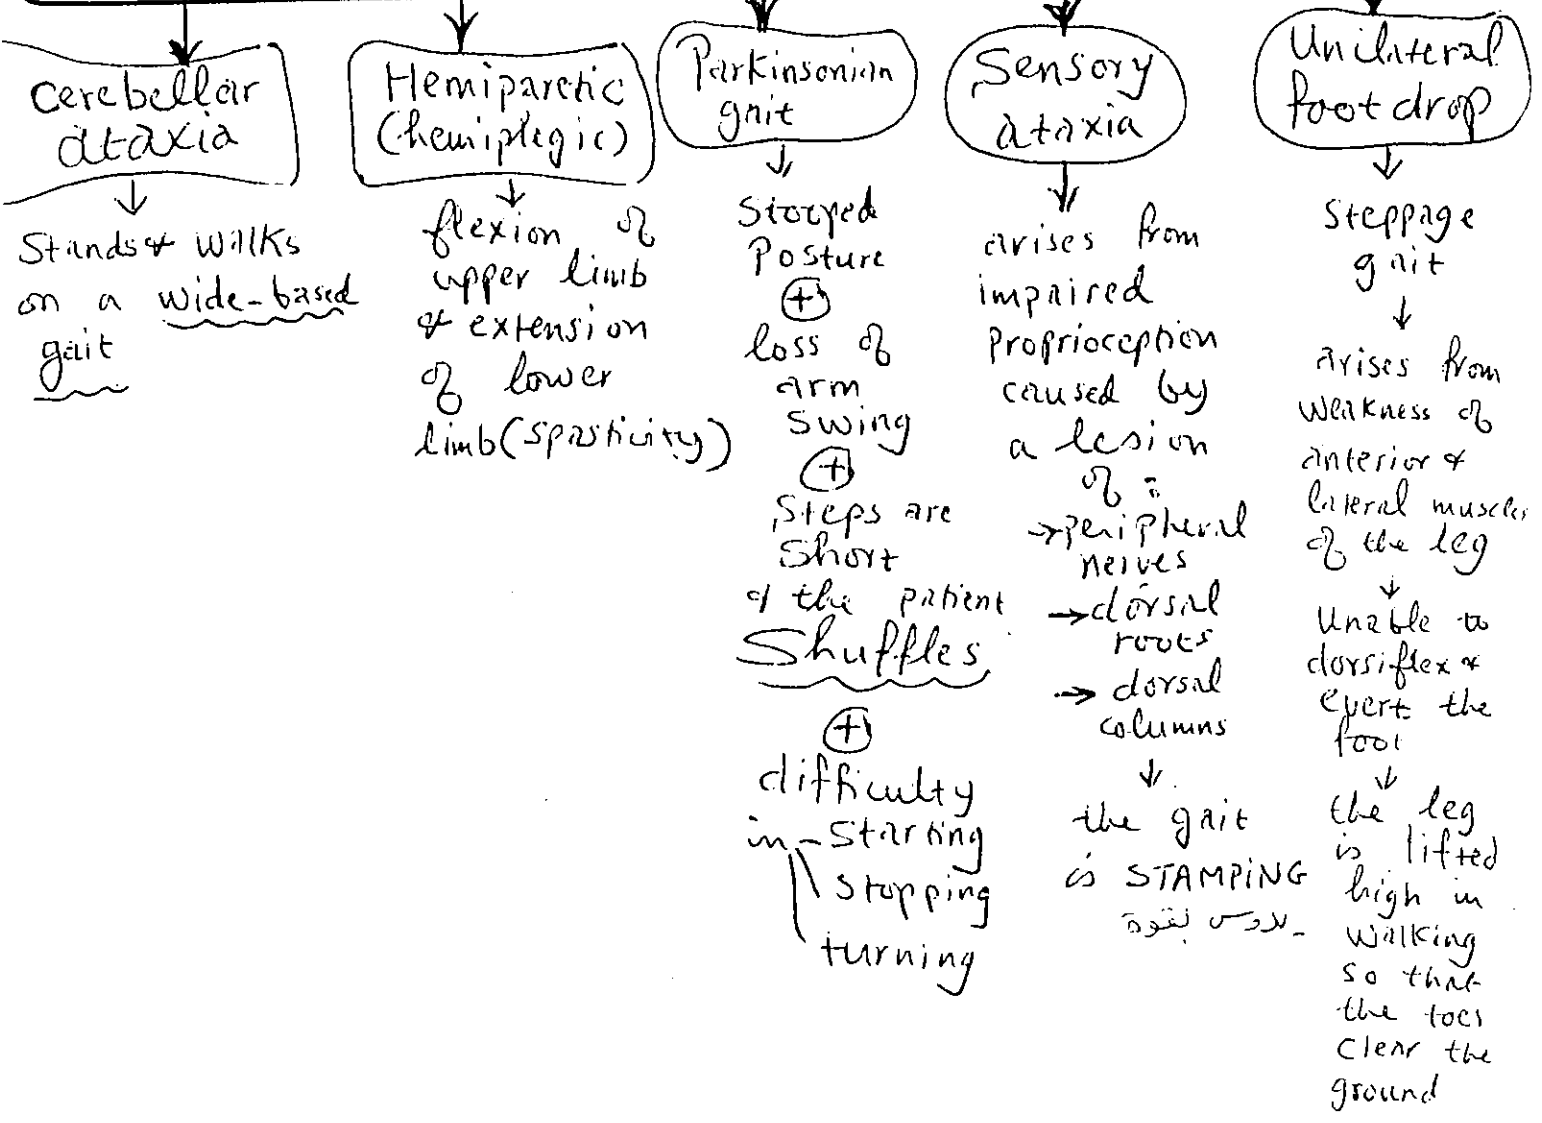 cerebellar
ataxia
Stands & walks
on a wide-based
gait
Hemiparetic
(hemiplegic)
flexion of
upper limb
& extension
of lower
limb (spasticity)
Parkinsonian
gait
Stooped
Posture
+
loss of
arm
swing
+
Steps are
short
& the patient
Shuffles
+
difficulty
in - Starting
Stopping
turning
Sensory
ataxia
arises from
impaired
Proprioception
caused by
a lesion
of :
→ peripheral
nerves
→ dorsal
roots
→ dorsal
columns
the gait
is STAMPING
يدوس بقوة
Unilateral
foot drop
Steppage
gait
arises from
weakness of
anterior &
lateral muscles
of the leg
Unable to
dorsiflex &
evert the
foot
the leg
is lifted
high in
walking
so that
the toes
clear the
ground